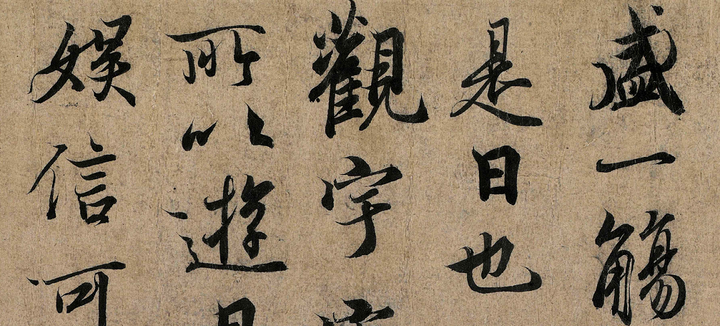 盛一觴
是日也
觀宇宙
所以遊目
娛信可